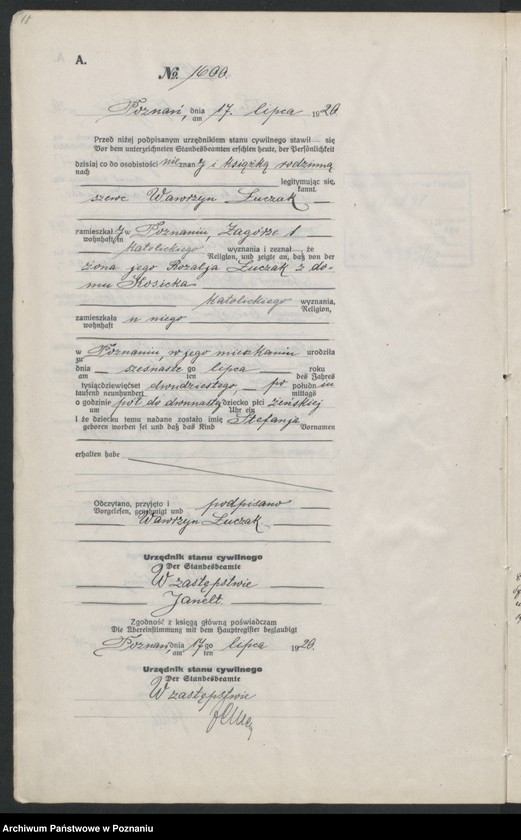 A.
No. 1600.
Poznań, dnia 17. lipca 1920.
am
Przed niżej podpisanym urzędnikiem stanu cywilnego stawił — się
Vor dem unterzeichneten Standesbeamten erschien heute, der Persönlichkeit
dzisiaj co do osobistości nieznany i książką rodzinną
nach
legitymując się,
kannt.
szewc Wawrzyn Łuczak —
zamieszkały w Poznaniu, Zagórze 1
wohnhaft in
katolickiego wyznania i zeznał, że
Religion, und zeigte an, daß von der
żona jego Rozalja Łuczak z do-
mu Kosicka
katolickiego wyznania,
Religion,
zamieszkała u niego
wohnhaft
w Poznaniu, w jego mieszkaniu urodziła
zu
dnia — szesnastego lipca — roku
am ten des Jahres
tysiącdziewięćset dwudziestego, — po południu
tausend neunhundert mittags
o godzinie pół do dwunastej dziecko płci żeńskiej
um Uhr ein
i że dziecku temu nadane zostało imię Stefanja
geboren worden sei und daß das Kind Vornamen
erhalten habe
Odczytano, przyjęto i podpisano
Vorgelesen, genehmigt und
Wawrzyn Łuczak
Urzędnik stanu cywilnego
Der Standesbeamte
W zastępstwie
Janelt.
Zgodność z księgą główną poświadczam
Die Übereinstimmung mit dem Hauptregister beglaubigt
Poznań dnia 17 go lipca 1920.
am ten
Urzędnik stanu cywilnego
Der Standesbeamte
W zastępstwie
Archiwum Państwowe w Poznaniu